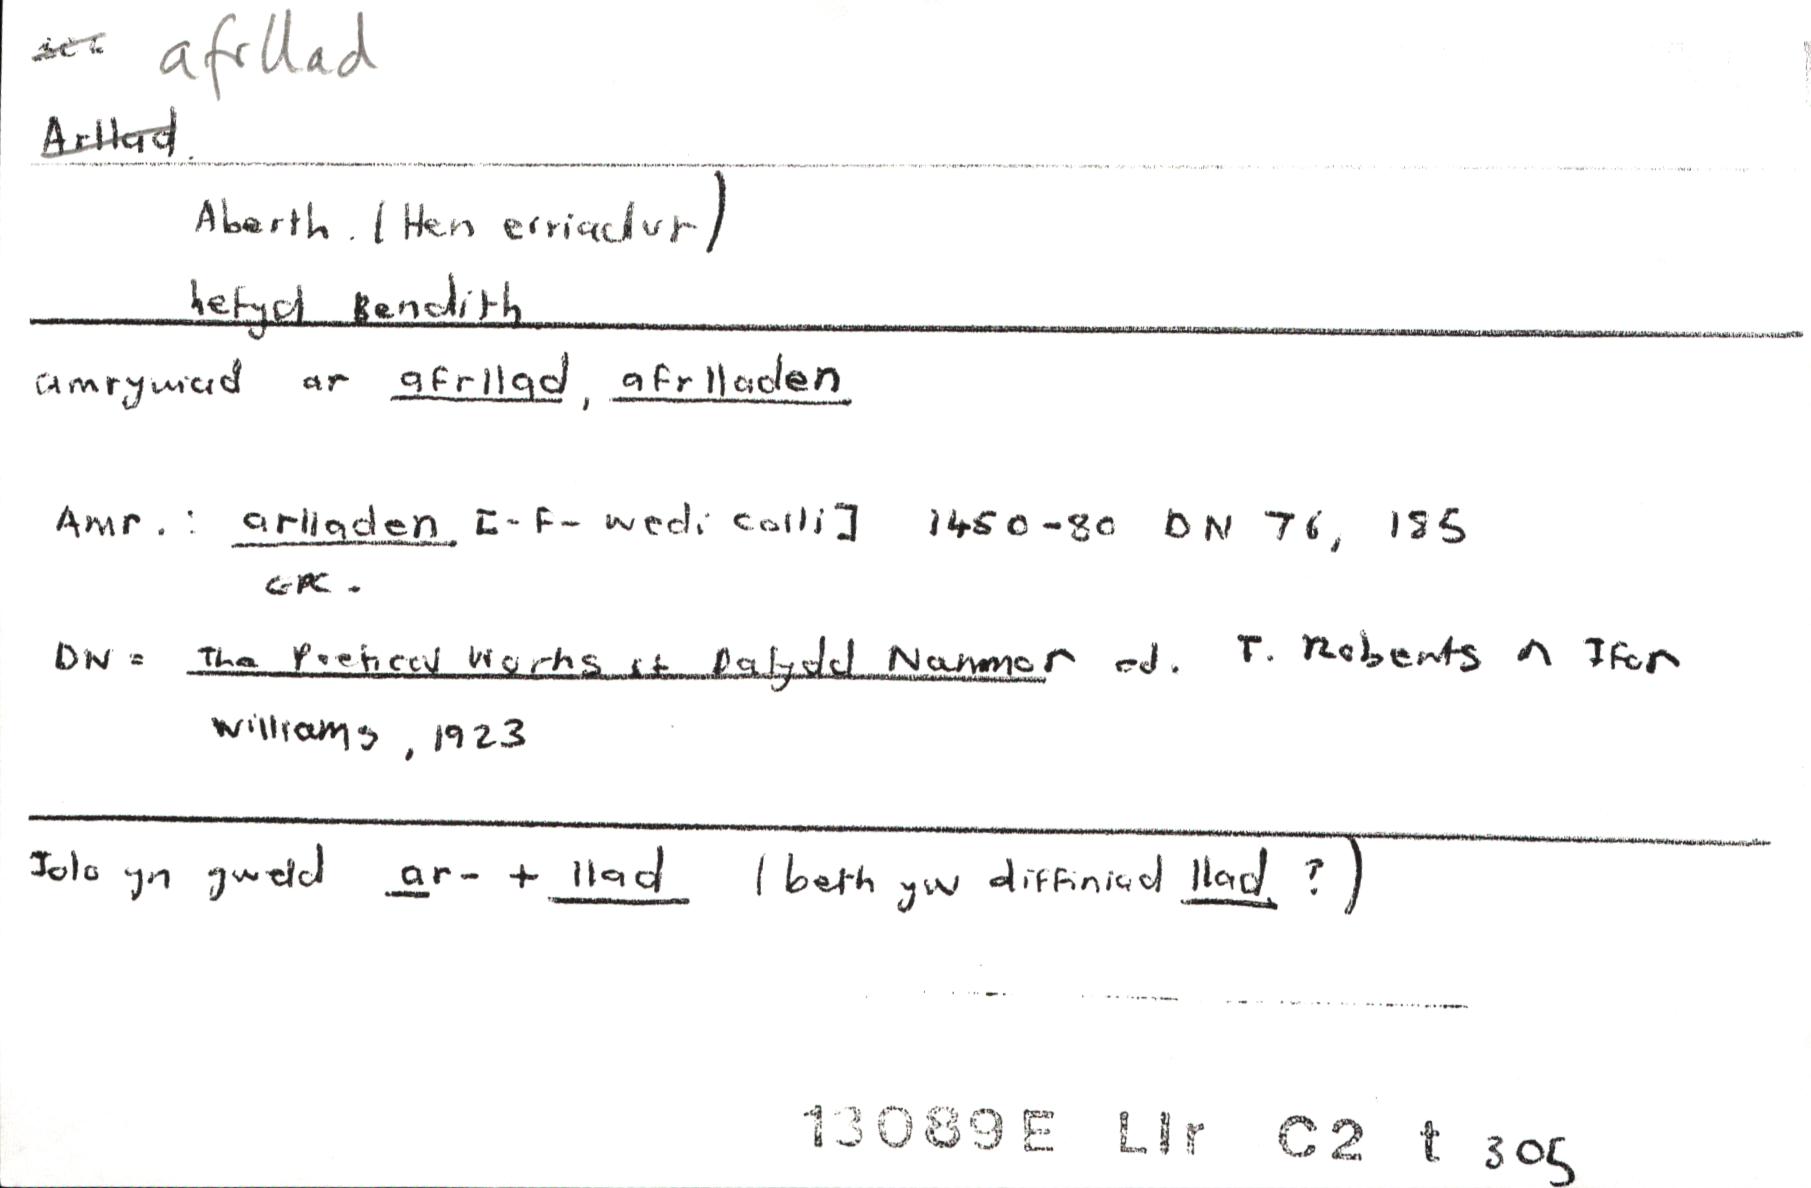 afrllad
Arllad.
Aberth. (Hen eiriadur)
hefyd Bendith
amrywiad ar afrllad, afrlladen
Amr. : arlladen [-f- wedi colli] 1450-80 DN 76, 185
GPC.
DN = The Poetical Works of Dafydd Nanmor ed. T. Roberts a Ifor
Williams, 1923
Iolo yn gweld ar- + llad (beth yw diffiniad llad ?)
13089E Llr C2 t 305